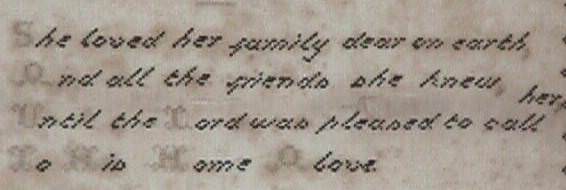 She loved her family dear on earth
And all the friends she knew
her
Until the Lord was pleased to call
To His Home Above